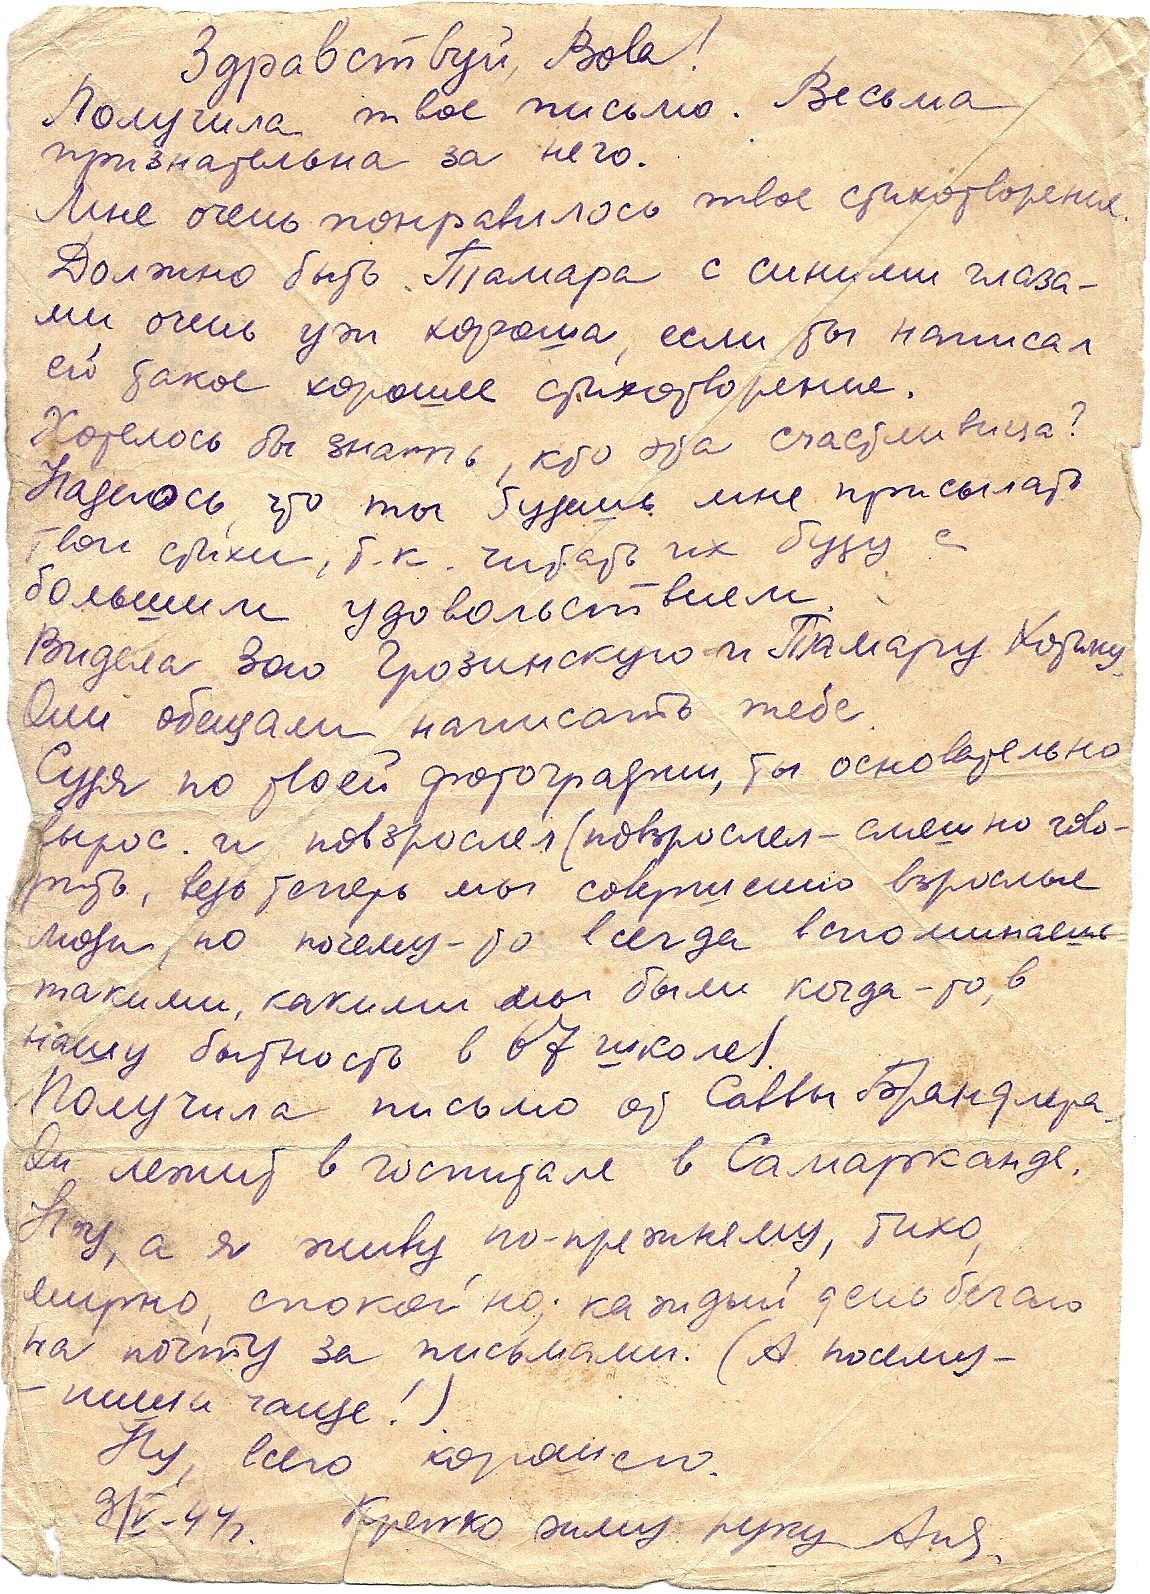 Здравствуй, Вова!
Получила твое письмо. Весьма
признательна за него.
Мне очень понравилось твое стихотворение.
Должно быть Тамара с синими глаза-
ми очень уж хороша, если ты написал
ей такое хорошее стихотворение.
Хотелось бы знать, кто эта счастливица?
Надеюсь, что ты будешь мне присылать
твои стихи, т.к. читать их буду с
большим удовольствием.
Видела Зою Грозинскую и Тамару
Они обещали написать тебе.
Судя по твоей фотографии, ты основательно
вырос и повзрослел (повзрослел – смешно гово-
рить, ведь теперь мы совершенно взрослые
люди, но почему-то всегда вспоминаешь
такими, какими мы были когда-то, в
нашу бытность в 67 школе).
Получила письмо от Саввы Брандлера.
Он лежит в госпитале в Самарканде.
Ну, а я живу по-прежнему, тихо,
мирно, спокойно; каждый день бегаю
на почту за письмами. (А посему-
- пиши чаще!)
Ну, всего хорошего.
3/V-44г. Крепко жму руку Аня.